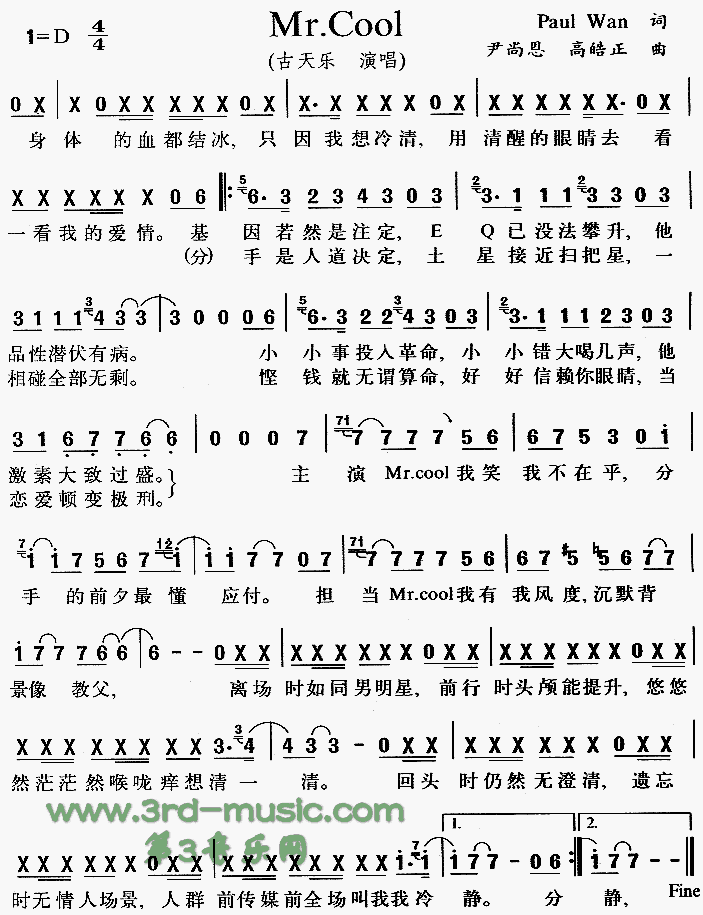 Mr.Cool
1=D 4/4
Paul Wan 词
(古天乐 演唱)
尹尚恩 高皓正 曲
0 X | X 0 X X X X X 0 X | X· X X X X 0 X | X X X X X X· 0 X
身 体 的血都结冰, 只 因我想冷清, 用 清醒的眼睛去 看
X X X X X X 0 6 ‖: 5 6· 3 2 3 4 3 0 3 | 2 3· 1 1 1 2 3 3 0 3
一看我的爱情。 基 因若然是注定, E Q已没法攀升, 他
(分) 手是人道决定, 土 星接近扫把星, 一
3 1 1 1 3 4 3 3 | 3 0 0 0 6 | 5 6· 3 2 2 3 4 3 0 3 | 2 3· 1 1 1 2 3 0 3
品性潜伏有病。 小 小事投入革命, 小 小错大喝几声, 他
相碰全部无剩。 悭 钱就无谓算命, 好 好信赖你眼睛, 当
3 1 6 7 7 6 6 | 0 0 0 7 | 71 7 7 7 7 5 6 | 6 7 5 3 0 i
激素大致过盛。 主 演Mr.cool我笑 我不在乎, 分
恋爱顿变极刑。
7 i i 7 5 6 7 12 i | i i 7 7 0 7 | 71 7 7 7 7 5 6 | 6 7 #5 ♮5 6 7 7
手 的前夕最懂 应付。 担 当Mr.cool我有 我风度, 沉默背
i 7 7 7 6 6 | 6 - - 0 X X | X X X X X X 0 X X | X X X X X X 0 X X
景像 教父, 离场 时如同男明星, 前行 时头颅能提升, 悠悠
X X X X X X X X 3· 3 4 | 4 3 3 - 0 X X | X X X X X X 0 X X
然茫茫然喉咙痒想清一 清。 回头 时仍然无澄清, 遗忘
www.3rd-music.com
第3音乐网
1. 2.
X X X X X X 0 X X | X X X X X X X X i· 7 i | i 7 7 - 0 6 :‖ i 7 7 - ‖
时无情人场景, 人群 前传媒前全场叫我我冷 静。 分 静, Fine